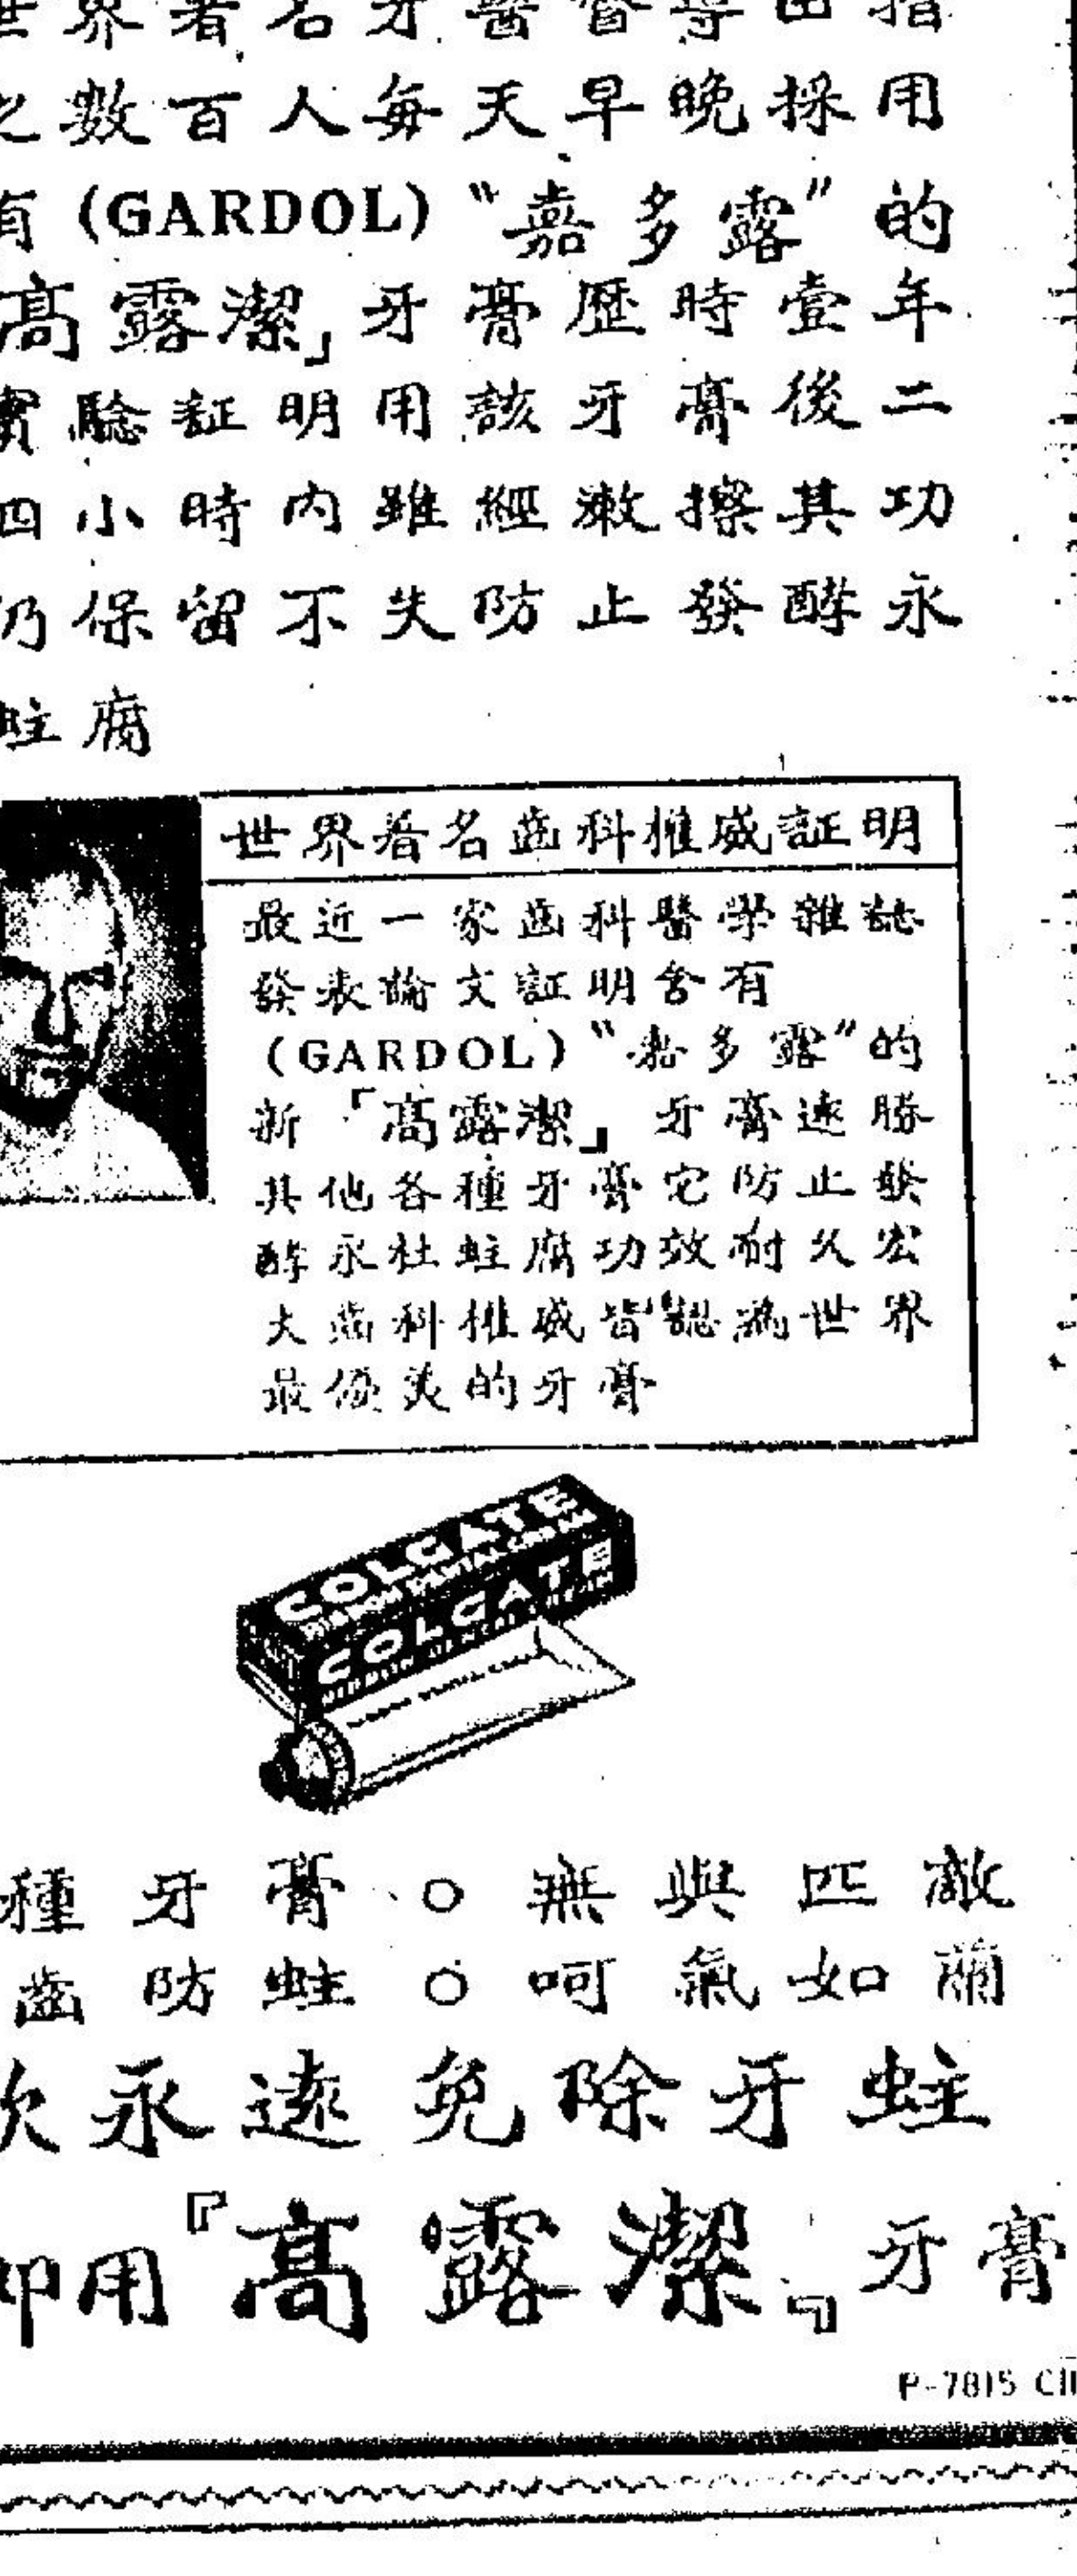 世界著名牙醫督導由指
之數百人每天早晚採用
有 (GARDOL) “嘉多露” 的
高露潔」牙膏歷時壹年
實驗証明用該牙膏後二
四小時內雖經漱擦其功
仍保留不失防止發酵永
蛀腐
世界著名齒科權威証明
最近一家齒科醫學雜誌
發表論文証明含有
(GARDOL) “嘉多露” 的
新「高露潔」牙膏遠勝
其他各種牙膏它防止發
酵永杜蛀腐功效耐久宏
大齒科權威皆認為世界
最優美的牙膏
COLGATE
COLGATE
種牙膏○無與匹敵
齒防蛀○呵氣如蘭
欲永遠免除牙蛀
即用『高露潔』牙膏
P-7815 CH